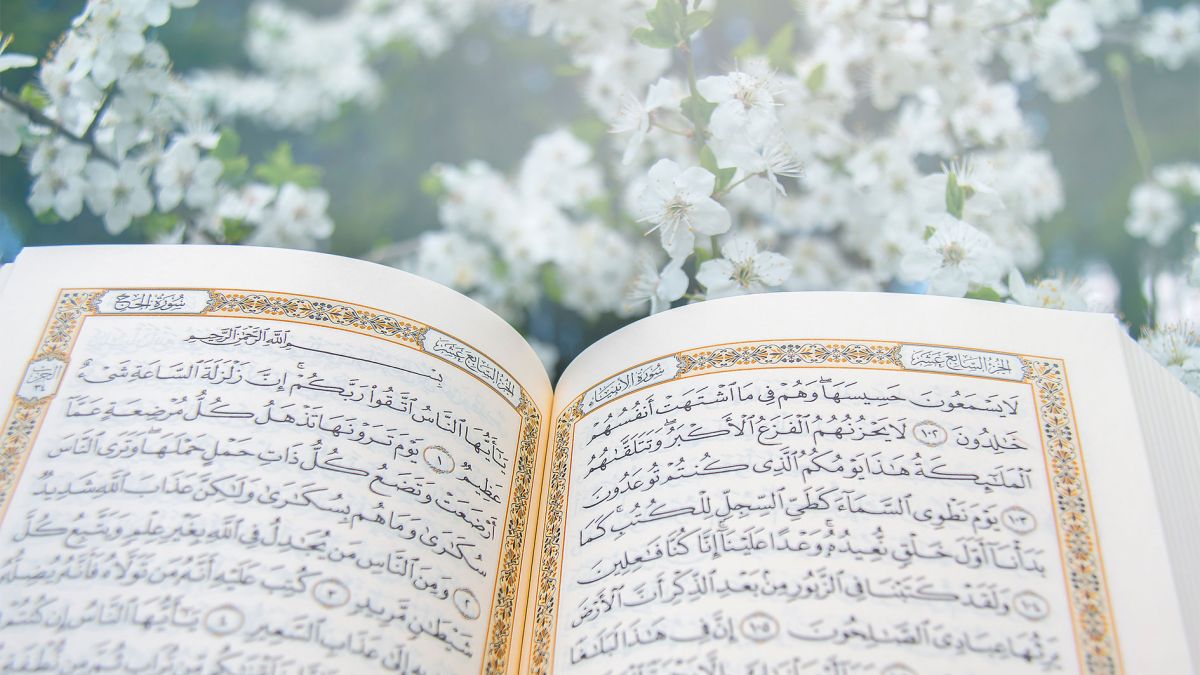 الجُزْءُ السَّابِعَ عَشَرَ
سُورَةُ الأَنبِيَاءِ
لَا يَسْمَعُونَ حَسِيسَهَا ۖ وَهُمْ فِي مَا ٱشْتَهَتْ أَنفُسُهُمْ
خَٰلِدُونَ ١٠٢ لَا يَحْزُنُهُمُ ٱلْفَزَعُ ٱلْأَكْبَرُ وَتَتَلَقَّىٰهُمُ
ٱلْمَلَٰٓئِكَةُ هَٰذَا يَوْمُكُمُ ٱلَّذِي كُنتُمْ تُوعَدُونَ
١٠٣ يَوْمَ نَطْوِي ٱلسَّمَآءَ كَطَيِّ ٱلسِّجِلِّ لِلْكُتُبِ ۚ كَمَا
بَدَأْنَآ أَوَّلَ خَلْقٍ نُّعِيدُهُۥ ۚ وَعْدًا عَلَيْنَآ ۚ إِنَّا كُنَّا فَٰعِلِينَ
١٠٤ وَلَقَدْ كَتَبْنَا فِي ٱلزَّبُورِ مِنۢ بَعْدِ ٱلذِّكْرِ أَنَّ ٱلْأَرْضَ
يَرِثُهَا عِبَادِيَ ٱلصَّٰلِحُونَ ١٠٥ إِنَّ فِي هَٰذَا لَبَلَٰغًا
الجُزْءُ السَّابِعَ عَشَرَ
سُورَةُ الحَجِّ
بِسْمِ ٱللَّهِ ٱلرَّحْمَٰنِ ٱلرَّحِيمِ
يَٰٓأَيُّهَا ٱلنَّاسُ ٱتَّقُوا۟ رَبَّكُمْ ۚ إِنَّ زَلْزَلَةَ ٱلسَّاعَةِ شَيْءٌ
عَظِيمٌ ١ يَوْمَ تَرَوْنَهَا تَذْهَلُ كُلُّ مُرْضِعَةٍ عَمَّآ
أَرْضَعَتْ وَتَضَعُ كُلُّ ذَاتِ حَمْلٍ حَمْلَهَا وَتَرَى ٱلنَّاسَ
سُكَٰرَىٰ وَمَا هُم بِسُكَٰرَىٰ وَلَٰكِنَّ عَذَابَ ٱللَّهِ شَدِيدٌ
٢ وَمِنَ ٱلنَّاسِ مَن يُجَٰدِلُ فِي ٱللَّهِ بِغَيْرِ عِلْمٍ وَيَتَّبِعُ كُلَّ
شَيْطَٰنٍ مَّرِيدٍ ٣ كُتِبَ عَلَيْهِ أَنَّهُۥ مَن تَوَلَّاهُ فَأَنَّهُۥ يُضِلُّهُۥ
وَيَهْدِيهِ إِلَىٰ عَذَابِ ٱلسَّعِيرِ ٤ يَٰٓأَيُّهَا ٱلنَّاسُ إِن كُنتُمْ